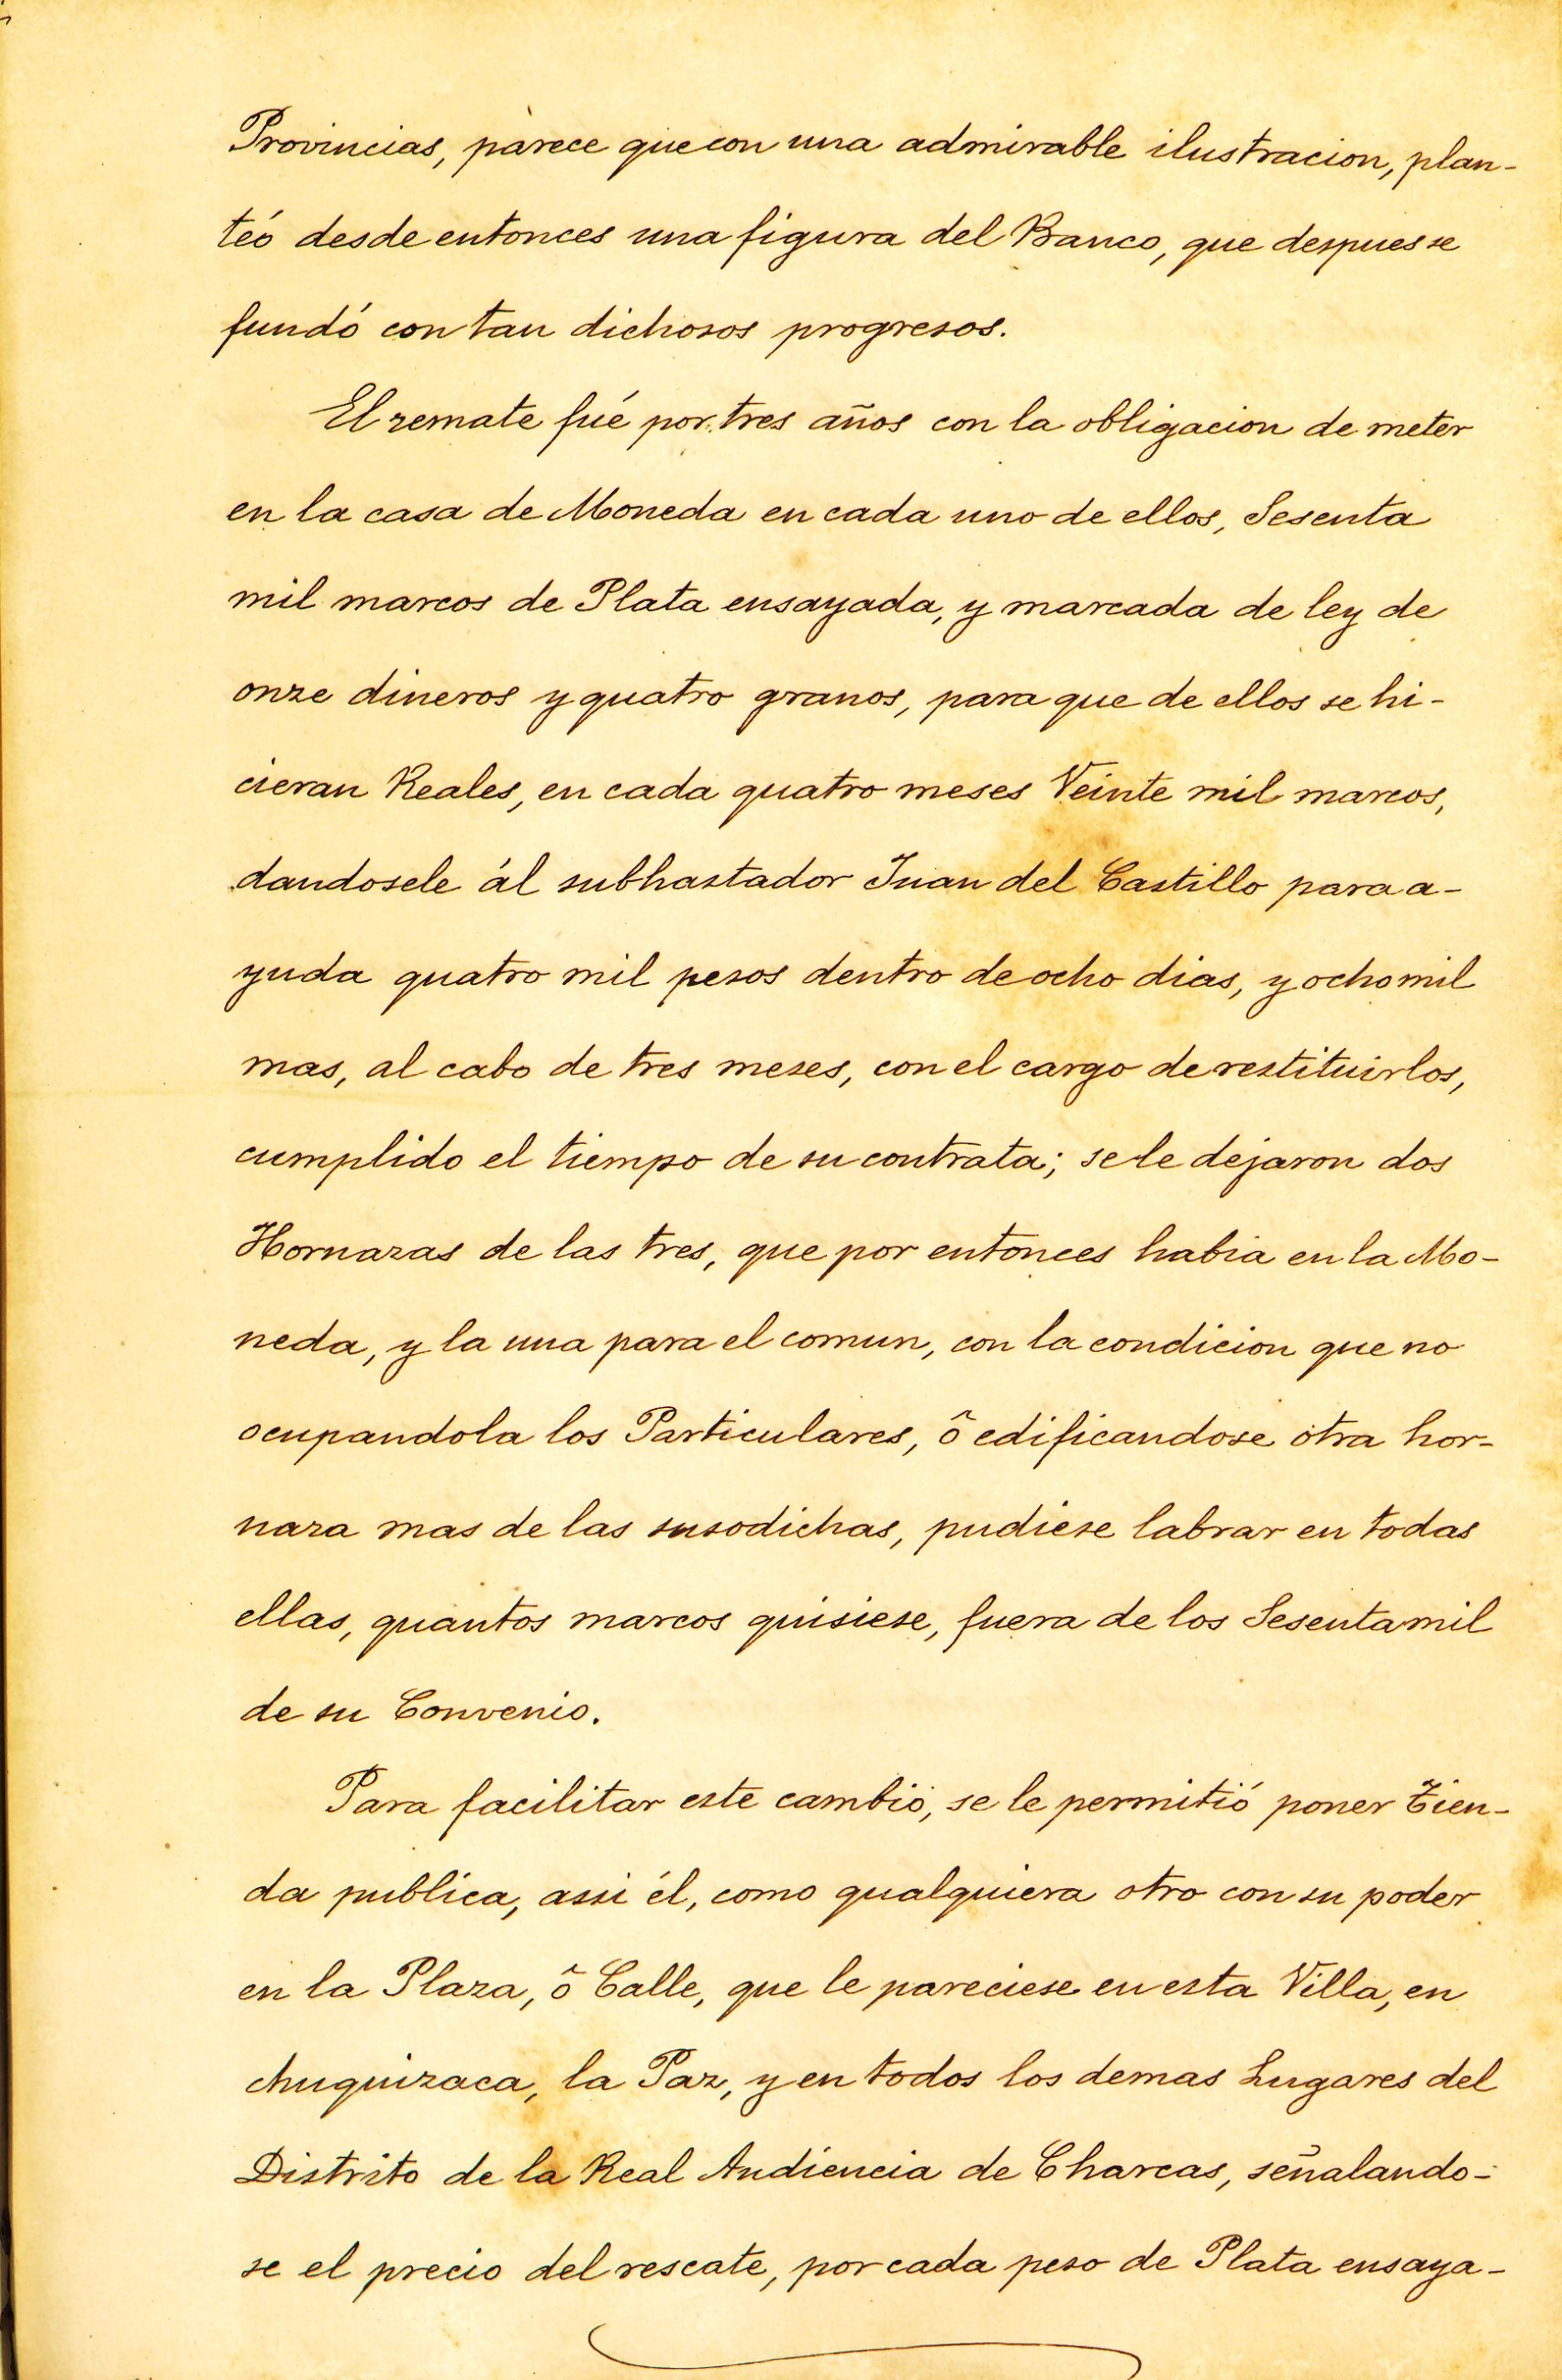 Provincias, parece que con una admirable ilustracion, plan-
teó desde entonces una figura del Banco, que despues se
fundó con tan dichosos progresos.
El remate fué por tres años con la obligacion de meter
en la casa de Moneda en cada uno de ellos, Sesenta
mil marcos de Plata ensayada, y marcada de ley de
onze dineros y quatro granos, para que de ellos se hi-
cieran Reales, en cada quatro meses Veinte mil marcos,
dandosele ál subhastador Juan del Castillo para a-
yuda quatro mil pesos dentro de ocho dias, y ocho mil
mas, al cabo de tres meses, con el cargo de restituirlos,
cumplido el tiempo de su contrata; se le dejaron dos
Hornazas de las tres, que por entonces habia en la Mo-
neda, y la una para el comun, con la condicion que no
ocupandola los Particulares, ô edificandose otra hor-
naza mas de las susodichas, pudiese labrar en todas
ellas, quantos marcos quisiese, fuera de los Sesenta mil
de su Convenio.
Para facilitar este cambio, se le permitió poner Tien-
da publica, assi él, como qualquiera otro con su poder
en la Plaza, ô Calle, que le pareciese en esta Villa, en
chuquizaca, la Paz, y en todos los demas Lugares del
Distrito de la Real Audiencia de Charcas, señalando-
se el precio del rescate, por cada peso de Plata ensaya-